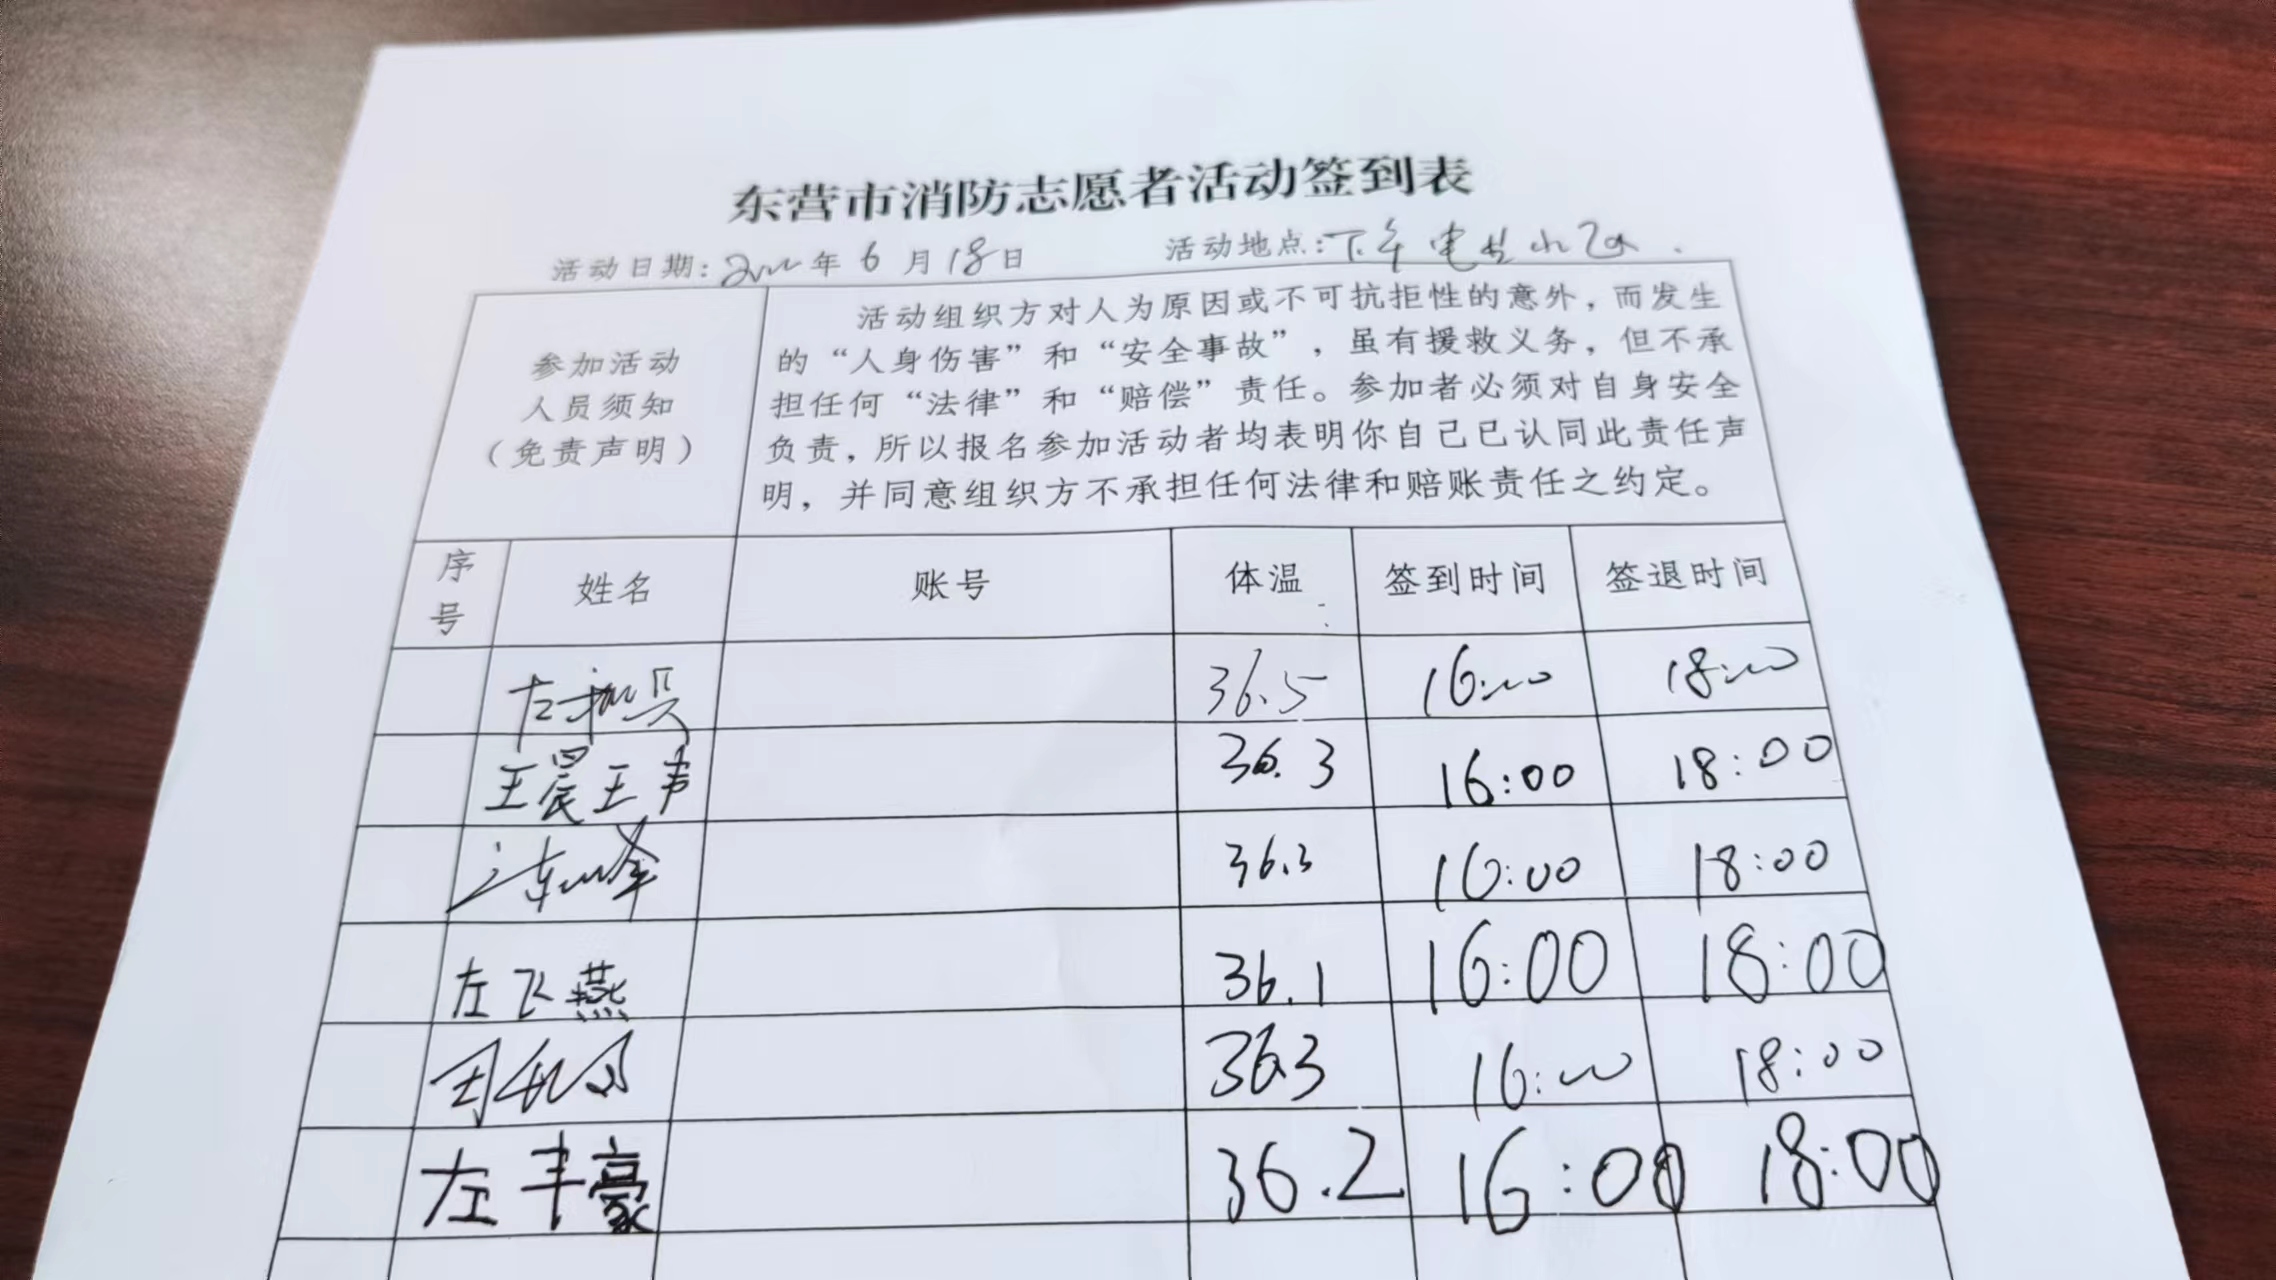 东营市消防志愿者活动签到表
活动日期: 年 6 月 18 日 活动地点:
参加活动
人员须知
（免责声明）
活动组织方对人为原因或不可抗拒性的意外，而发生
的“人身伤害”和“安全事故”，虽有援救义务，但不承
担任何“法律”和“赔偿”责任。参加者必须对自身安全
负责，所以报名参加活动者均表明你自己已认同此责任声
明，并同意组织方不承担任何法律和赔账责任之约定。
序号 姓名 账号 体温 签到时间 签退时间
36.5 16:00 18:00
王晨 36.3 16:00 18:00
36.3 16:00 18:00
左飞燕 36.1 16:00 18:00
36.3 16:00 18:00
左丰豪 36.2 16:00 18:00